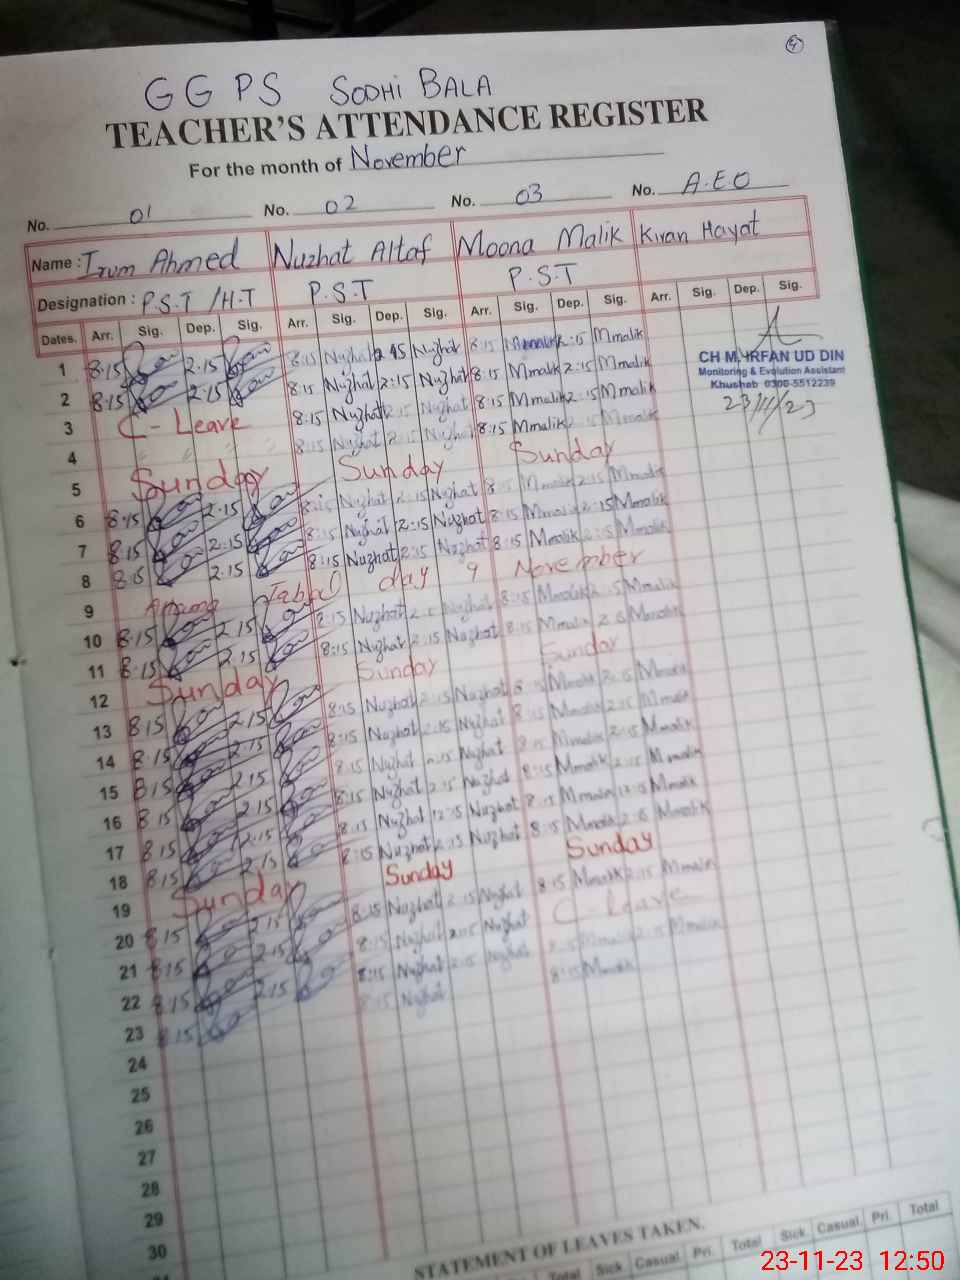 4
GGPS SODHI BALA
TEACHER'S ATTENDANCE REGISTER
For the month of November
No. 01 No. 02 No. 03 No. A.E.O
Name : Irum Ahmed Nuzhat Altaf Moona Malik Kiran Hayat
Designation : P.S.T / H.T P.S.T P.S.T
Dates. Arr. Sig. Dep. Sig. Arr. Sig. Dep. Sig. Arr. Sig. Dep. Sig. Arr. Sig. Dep. Sig.
1 8:15 2:15 8:15 Nuzhat 2:15 Nuzhat 8:15 Mmalik 2:15 Mmalik
CH M. IRFAN UD DIN
Monitoring & Evolution Assistant
Khushab 0300-5512239
23/11/23
2 8:15 2:15 8:15 Nuzhat 2:15 Nuzhat 8:15 Mmalik 2:15 Mmalik
3 C-Leave 8:15 Nuzhat 2:15 Nuzhat 8:15 Mmalik 2:15 Mmalik
4 8:15 Nuzhat 2:15 Nuzhat 8:15 Mmalik 2:15 Mmalik
5 Sunday Sunday Sunday
6 8:15 2:15 8:15 Nuzhat 2:15 Nuzhat 8:15 Mmalik 2:15 Mmalik
7 8:15 2:15 8:15 Nuzhat 2:15 Nuzhat 8:15 Mmalik 2:15 Mmalik
8 8:15 2:15 8:15 Nuzhat 2:15 Nuzhat 8:15 Mmalik 2:15 Mmalik
9 Iqbal day 9 November
10 8:15 2:15 8:15 Nuzhat Nuzhat 8:15 Mmalik 2:15 Mmalik
11 8:15 2:15 8:15 Nuzhat 2:15 Nuzhat 8:15 Mmalik Mmalik
12 Sunday Sunday Sunday
13 8:15 2:15 8:15 Nuzhat 2:15 Nuzhat Mmalik 2:15 Mmalik
14 8:15 2:15 8:15 Nuzhat 2:15 Nuzhat 8:15 Mmalik 2:15 Mmalik
15 8:15 2:15 8:15 Nuzhat 2:15 Nuzhat 8:15 Mmalik 2:15 Mmalik
16 8:15 2:15 8:15 Nuzhat 2:15 Nuzhat 8:15 Mmalik 2:15 Mmalik
17 8:15 2:15 8:15 Nuzhat 12:15 Nuzhat 8:15 Mmalik 12:15 Mmalik
18 8:15 2:15 8:15 Nuzhat 2:15 Nuzhat 8:15 Mmalik Mmalik
19 Sunday Sunday Sunday
20 8:15 2:15 8:15 Nuzhat 2:15 Nuzhat 8:15 Mmalik 2:15 Mmalik
21 8:15 2:15 8:15 Nuzhat 2:15 Nuzhat C-Leave
22 8:15 2:15 8:15 Nuzhat 2:15 Nuzhat 8:15 Mmalik 2:15 Mmalik
23 8:15 8:15 Nuzhat 8:15 Mmalik
24
25
26
27
28
29
30
STATEMENT OF LEAVES TAKEN.
Total Sick Casual Pri. Total Sick Casual Pri. Total
23-11-23 12:50